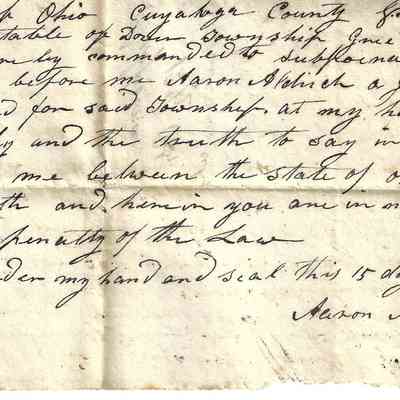 Ohio Cuyahoga County
table of Dover Township Gree
by commanded to Subpoena
before me Aaron Aldrich a
d for said Township, at my ho
and the truth to say in
me between the state of o
th and herein you are in n
penalty of the Law
nder my hand and seal this 15 da
Aaron A